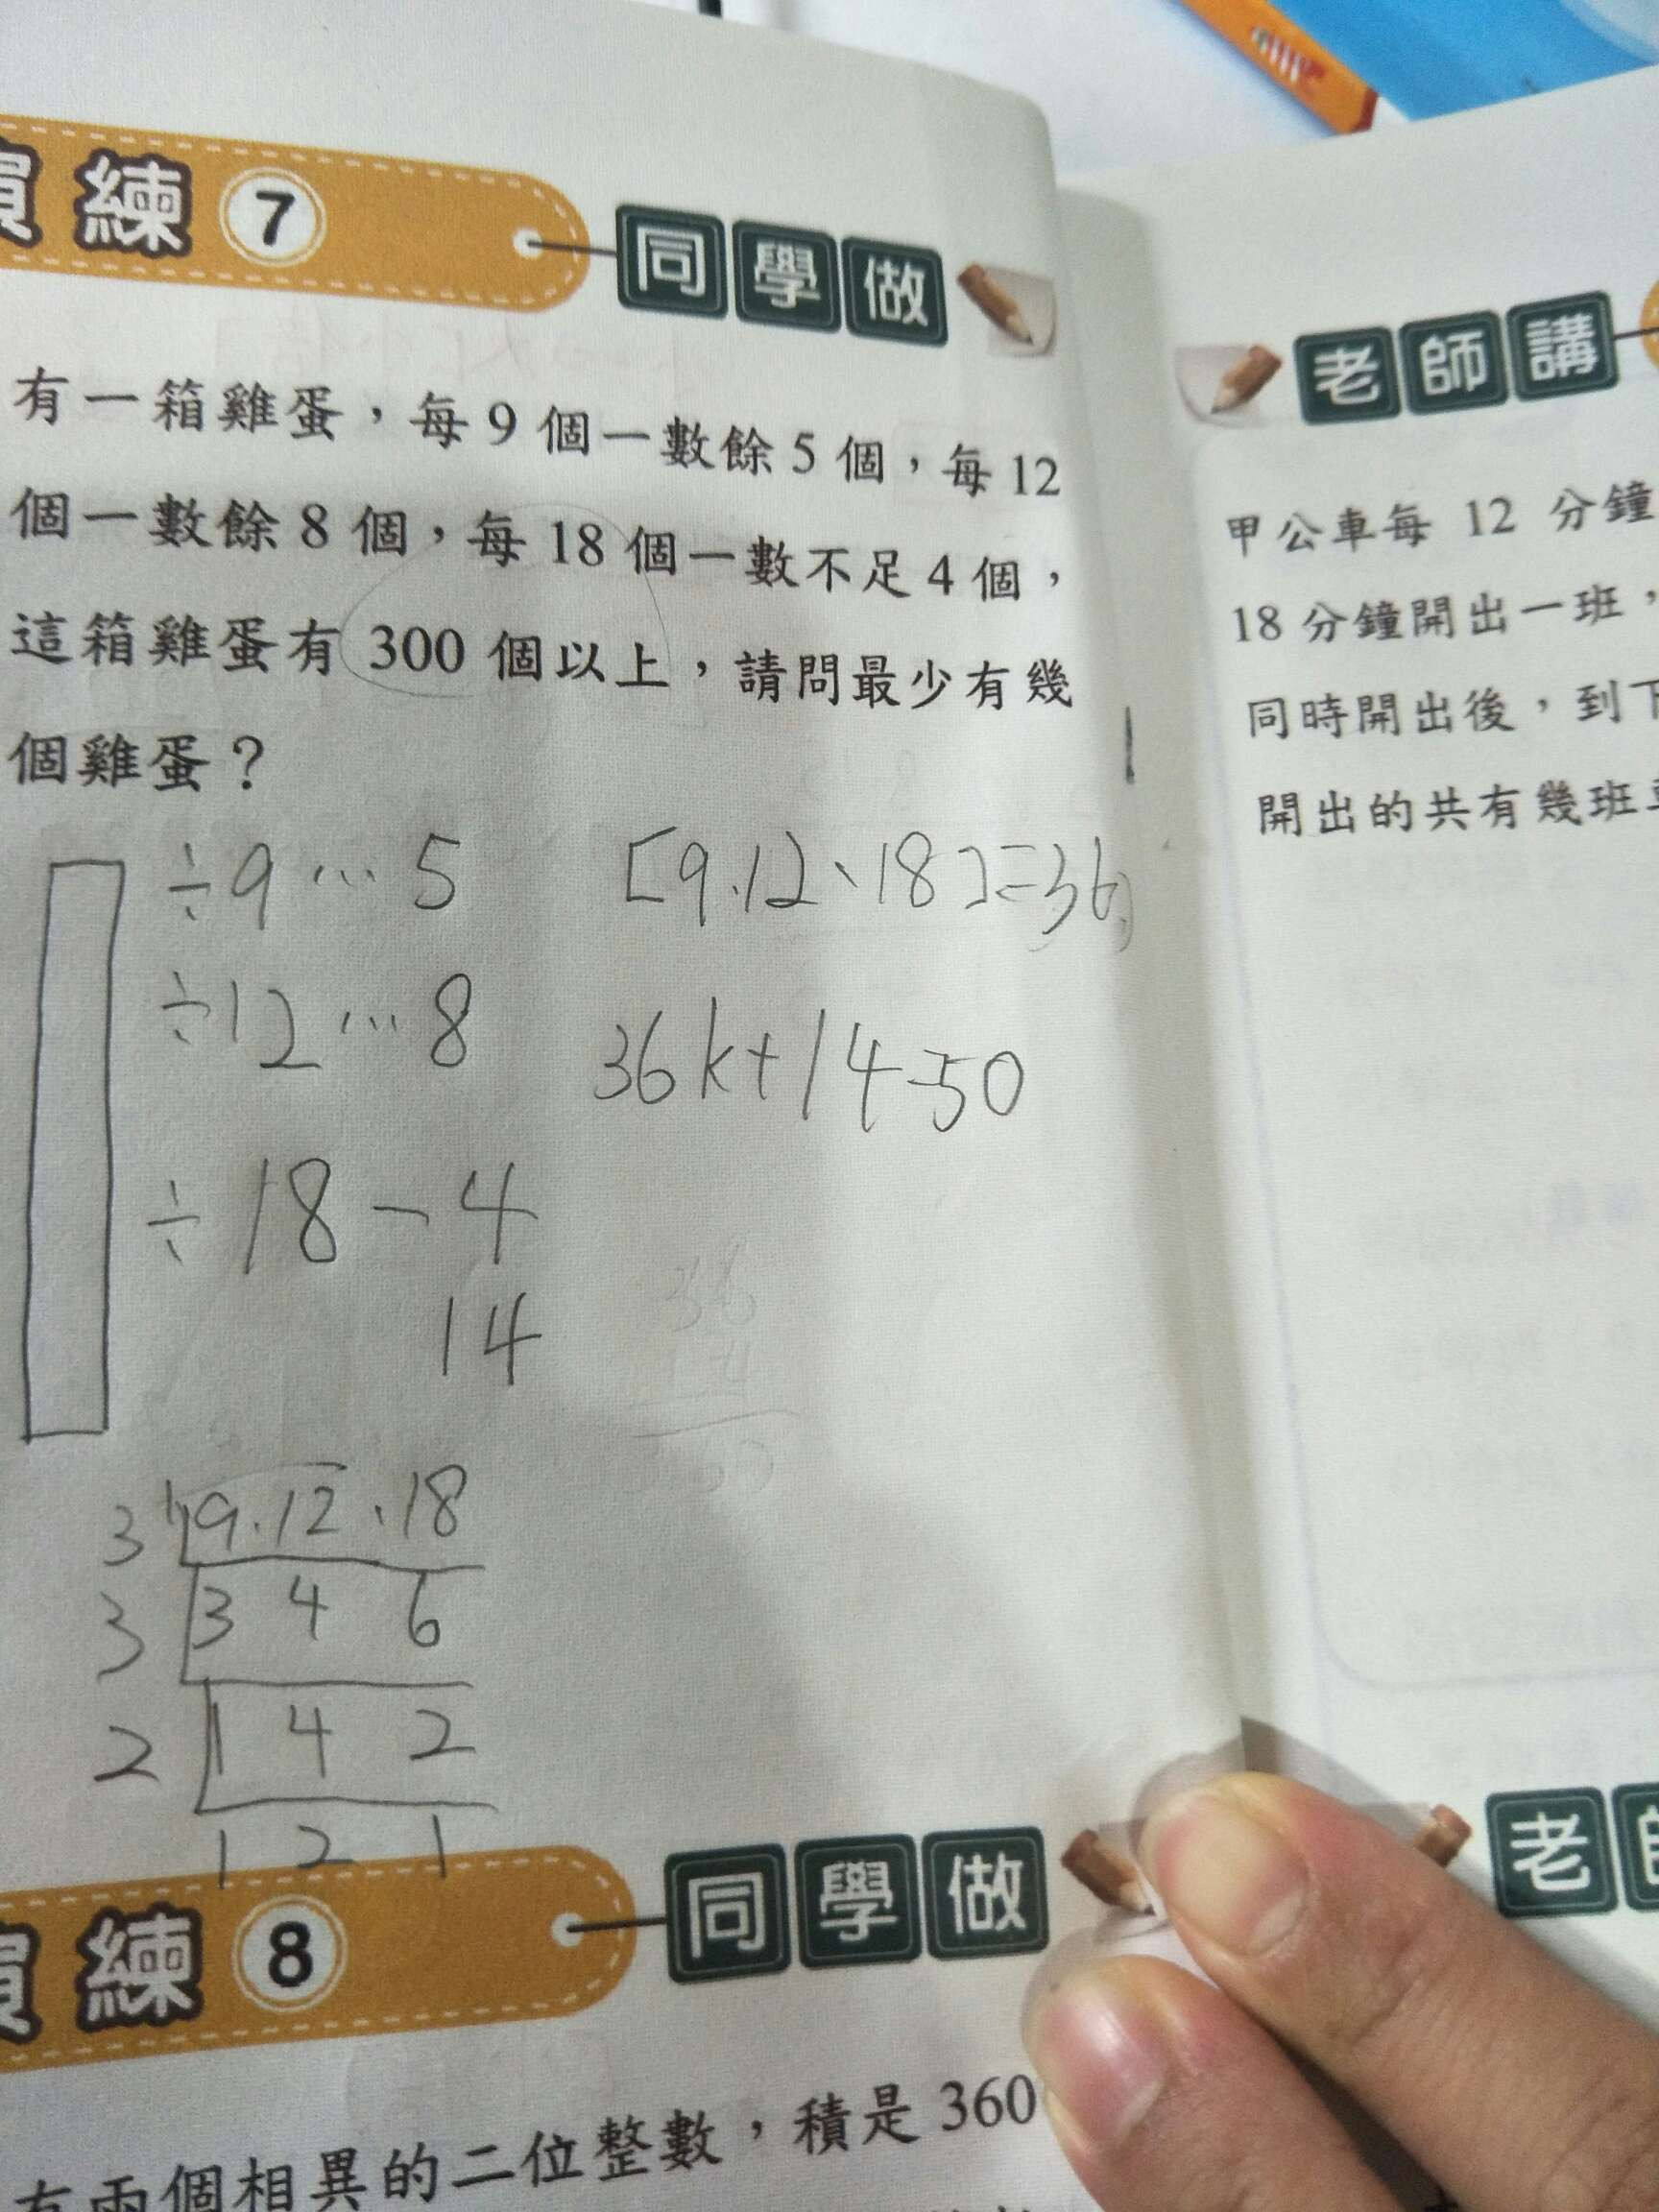 練 7 同學做
有一箱雞蛋，每 9 個一數餘 5 個，每 12
個一數餘 8 個，每 18 個一數不足 4 個，
這箱雞蛋有 300 個以上，請問最少有幾
個雞蛋？
÷9 … 5
÷12 … 8
÷18 - 4
14
[9.12、18]=36
36k+14-50
36
14
50
3 9.12、18
3 3 4 6
2 1 4 2
1 2 1
練 8 同學做
有兩個相異的二位整數，積是 360
老師講
甲公車每 12 分鐘
18 分鐘開出一班，
同時開出後，到下
開出的共有幾班
老